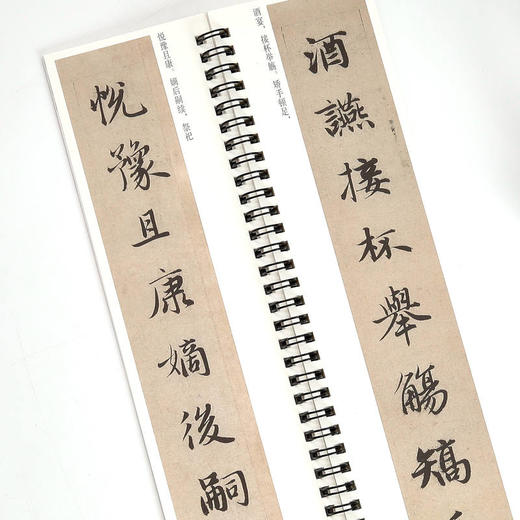 酒讌接杯舉觴矯
酒宴，接杯举觞。矫手顿足，
悦豫且康。嫡后嗣续，祭祀
悅豫且康嫡後嗣